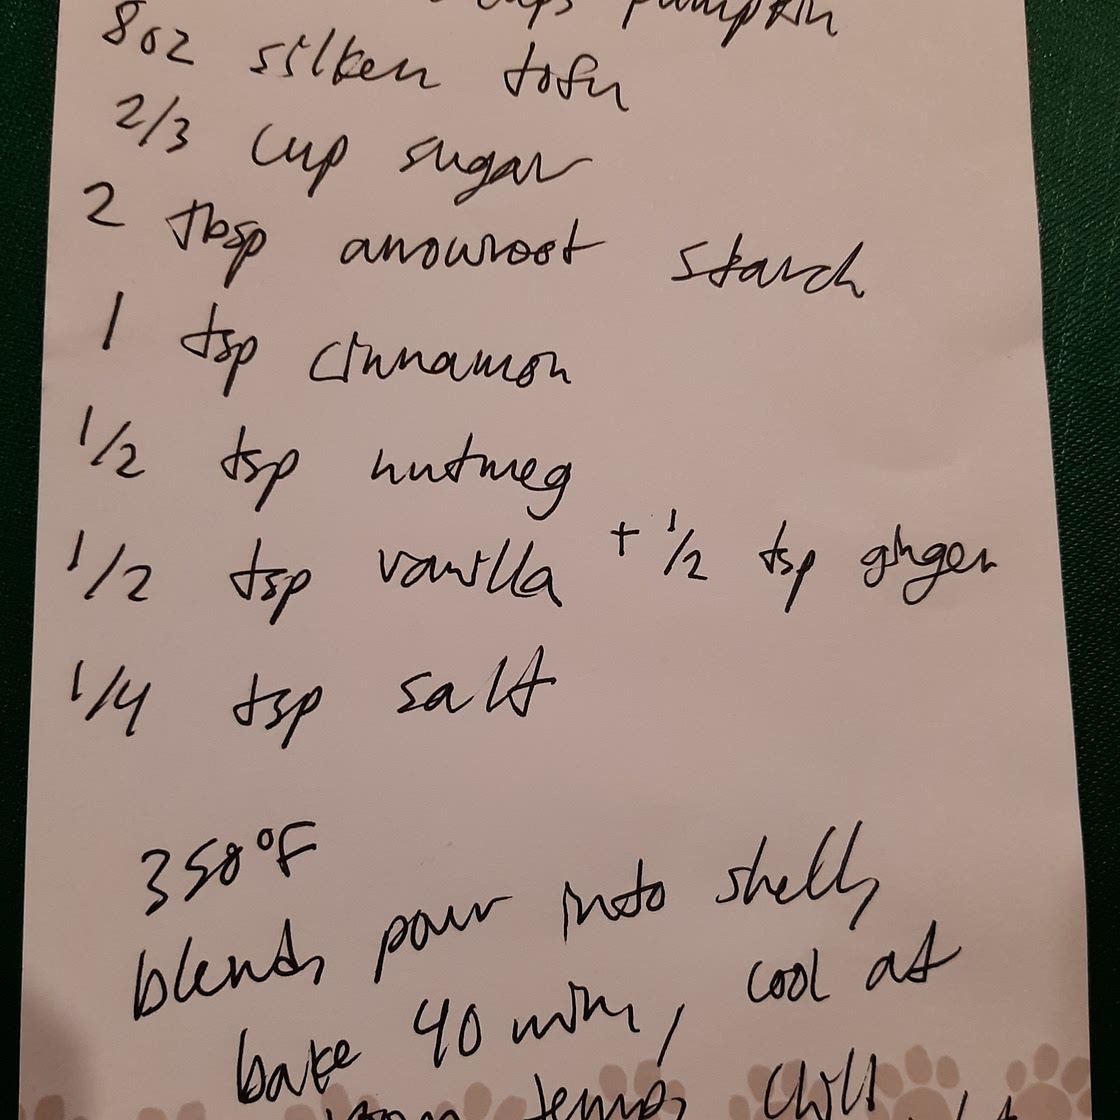 cups pumpkin
8oz silken tofu
2/3 cup sugar
2 tbsp arrowroot starch
1 tsp cinnamon
1/2 tsp nutmeg
1/2 tsp vanilla + 1/2 tsp ginger
1/4 tsp salt
350°F
blend, pour into shell,
bake 40 min, cool at
room temp, chill